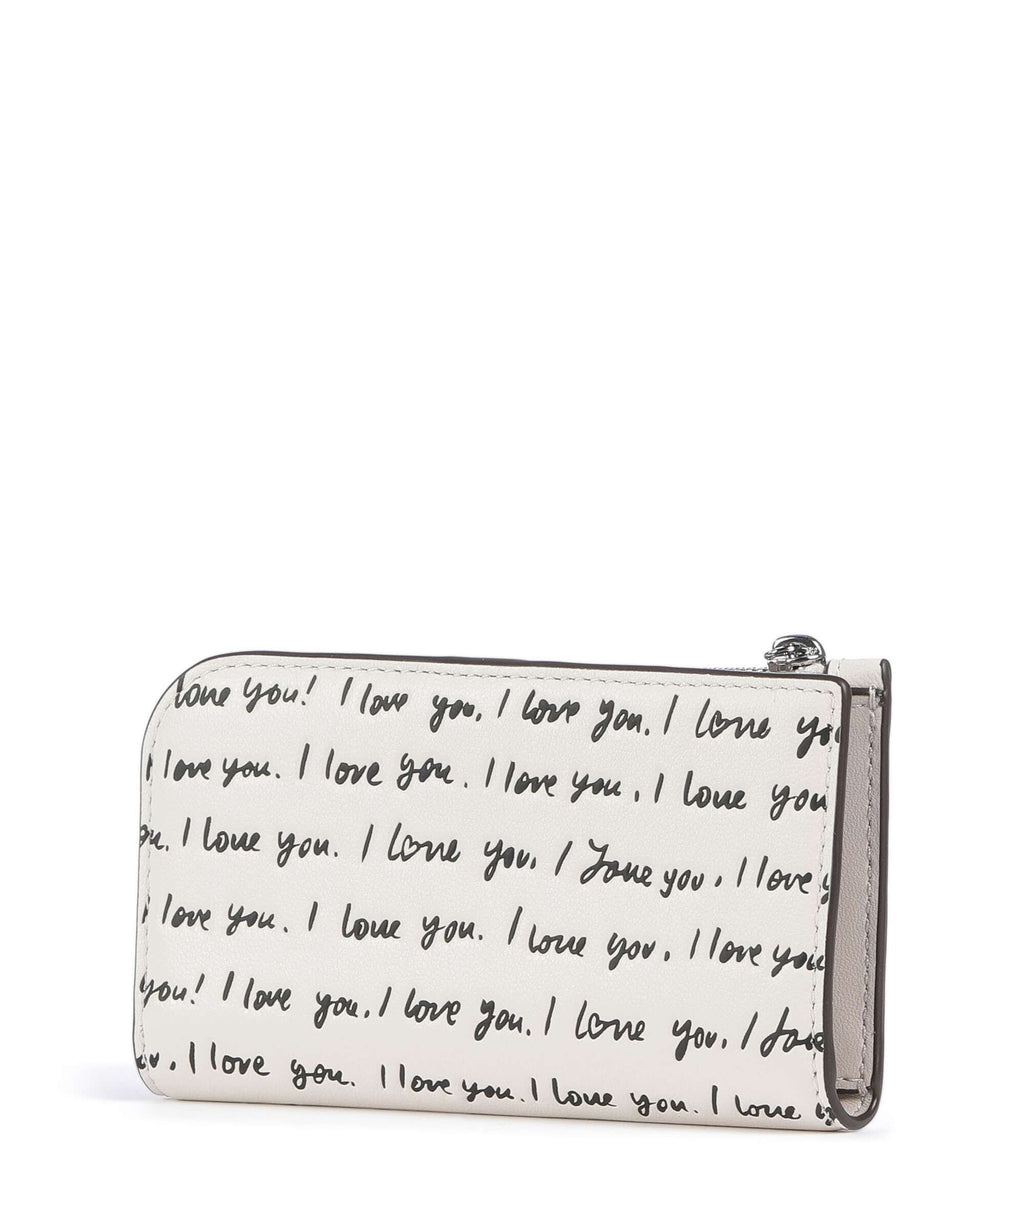 love you! I love you. I love you. I love yo
I love you. I love you. I love you. I love you
ou. I love you. I love you. I love you. I love y
I love you. I love you. I love you. I love you
you! I love you. I love you. I love you. I love
ou. I love you. I love you. I love you. I love y